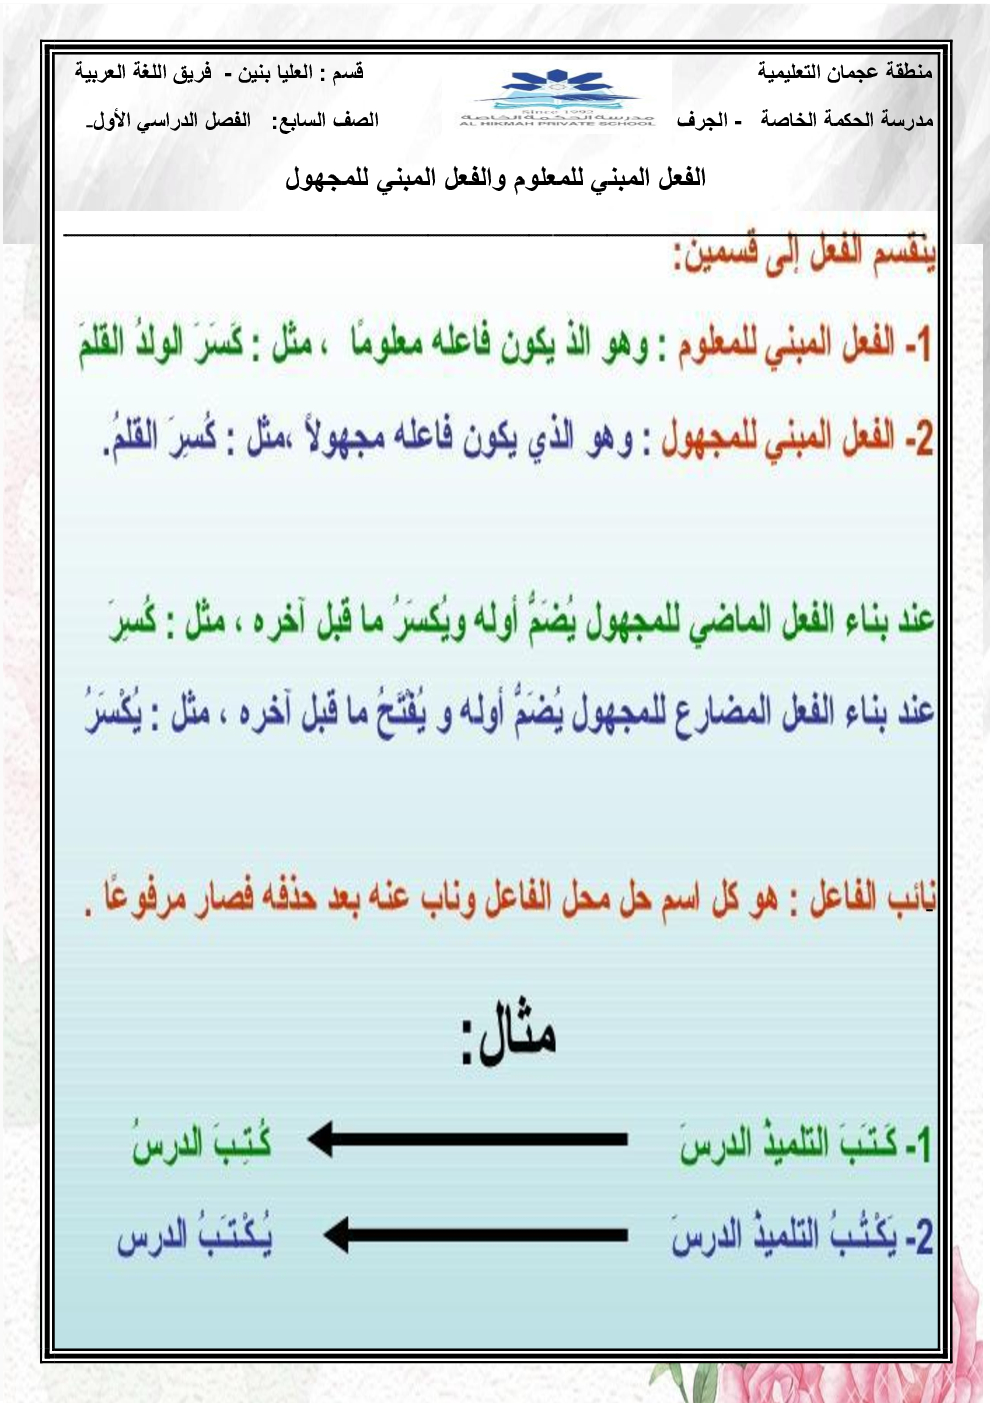 منطقة عجمان التعليمية
قسم : العليا بنين - فريق اللغة العربية
مدرسة الحكمة الخاصة - الجرف
الصف السابع: الفصل الدراسي الأول-
Since 1992
مدرسة الحكمة الخاصة
AL HIKMAH PRIVATE SCHOOL
الفعل المبني للمعلوم والفعل المبني للمجهول
ينقسم الفعل إلى قسمين:
1- الفعل المبني للمعلوم : وهو الذ يكون فاعله معلومًا ، مثل : كَسَرَ الولدُ القلمَ
2- الفعل المبني للمجهول : وهو الذي يكون فاعله مجهولاً ،مثل : كُسِرَ القلمُ.
عند بناء الفعل الماضي للمجهول يُضَمُّ أوله ويُكسَرُ ما قبل آخره ، مثل : كُسِرَ
عند بناء الفعل المضارع للمجهول يُضَمُّ أوله و يُفْتَحُ ما قبل آخره ، مثل : يُكْسَرُ
نائب الفاعل : هو كل اسم حل محل الفاعل وناب عنه بعد حذفه فصار مرفوعًا .
مثال:
1- كَتَبَ التلميذُ الدرسَ كُتِبَ الدرسُ
2- يَكْتُبُ التلميذُ الدرسَ يُكْتَبُ الدرس